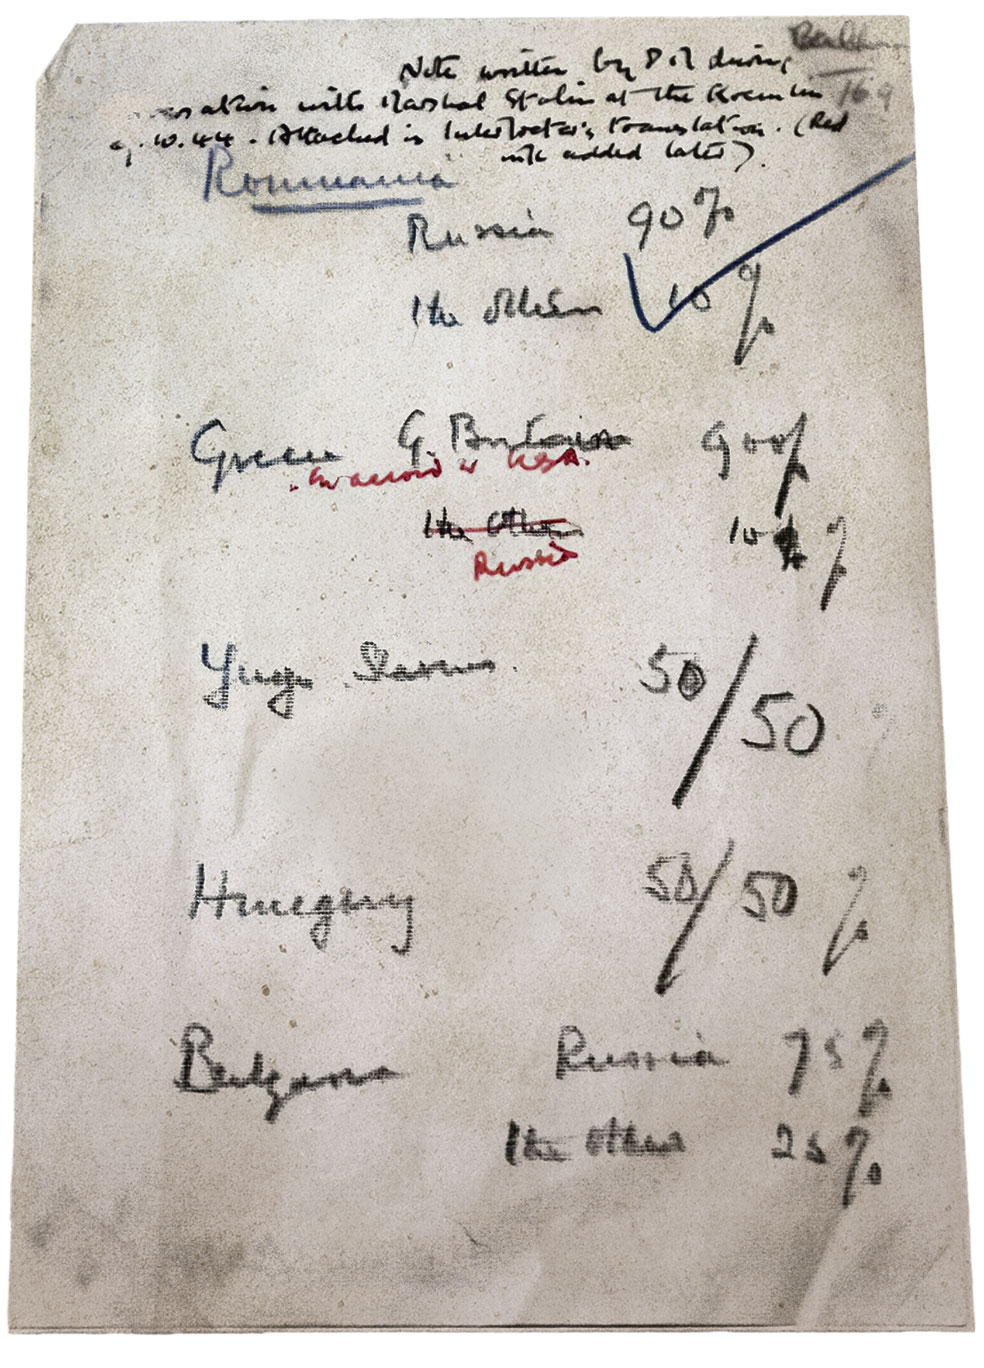 Note written by P M during
with Marshal Stalin at the Kremlin
9.10.44. Attached is Interpreter's translation. (Red
ink added later).
Roumania
Russia 90%
The others 10%
Greece G. Britain 90%
in accord w USA.
The Others 10%
Russia
Yugo Slavia 50/50
Hungary 50/50%
Bulgaria Russia 75%
The others 25%